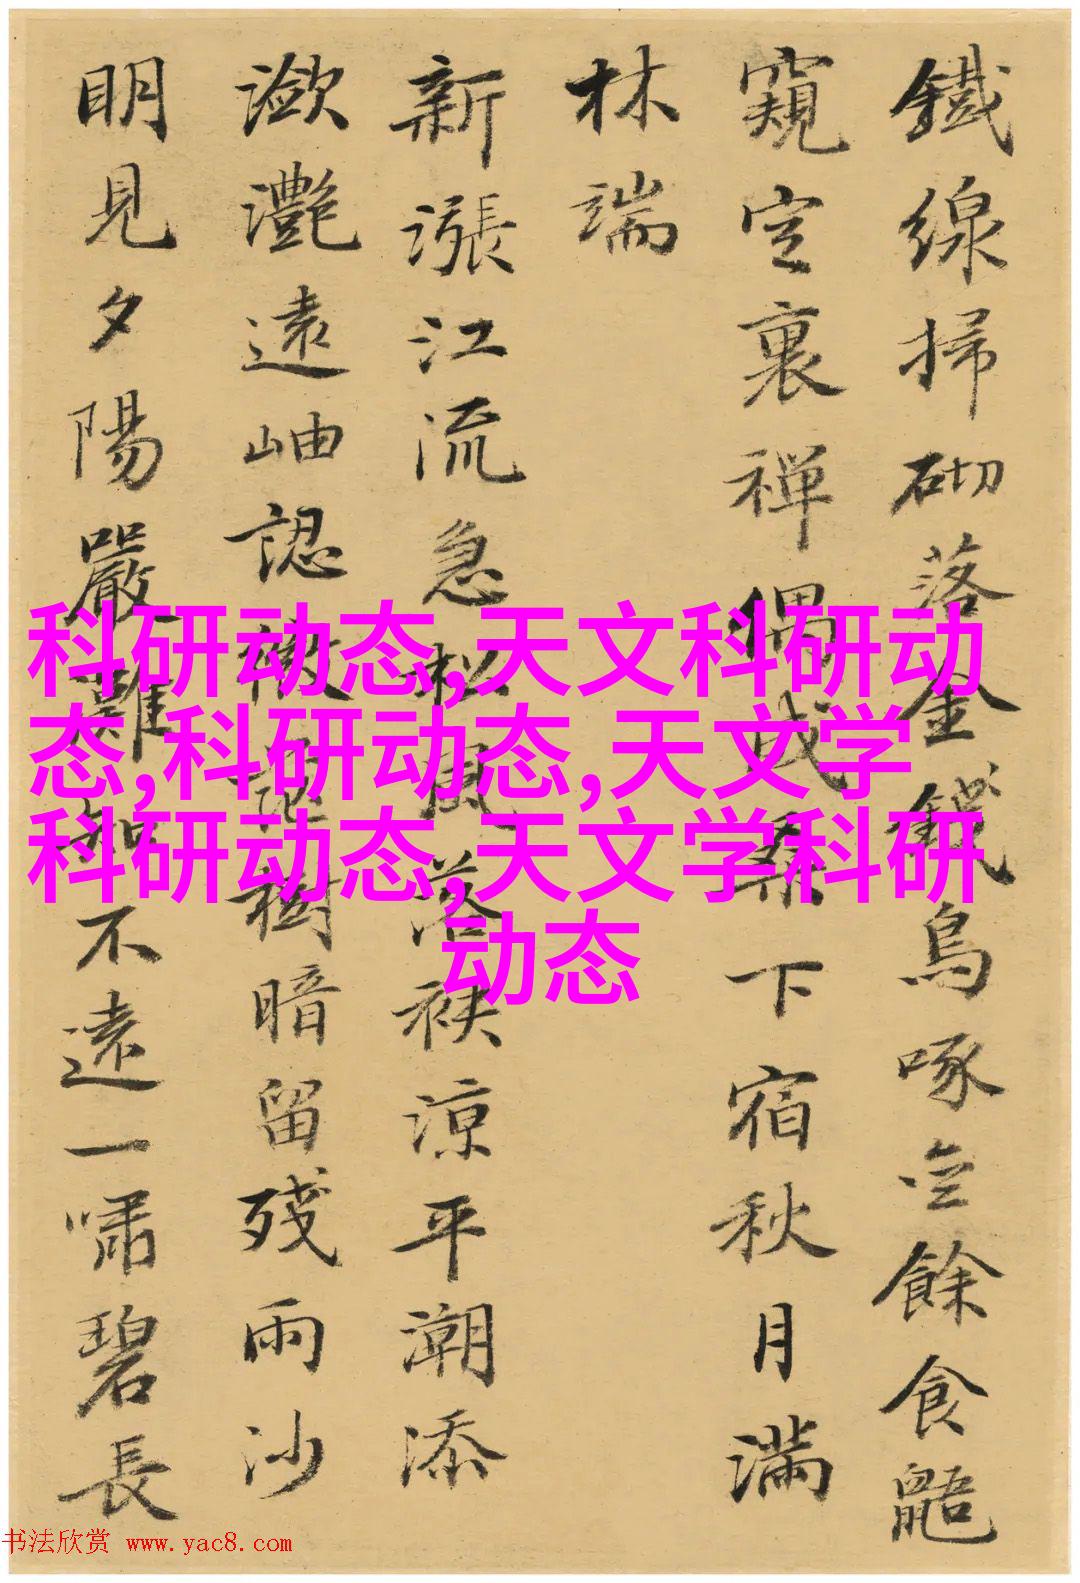 鐵線掃砌落金錢鳥啄空餘食鼯
窺空裏禪偶成桑下宿秋月滿
林端
新漲江流急松風落袂涼平潮添
瀲灧遠岫認微樹暗留殘雨沙
明見夕陽嚴灘知不遠一嘯碧長
科研动态,天文科研动
态,科研动态,天文学
科研动态,天文学科研
动态
书法欣赏 www.yac8.com